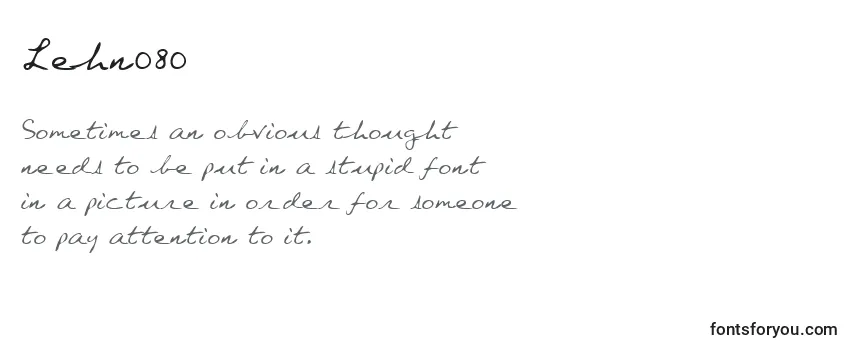 Lehn080
Sometimes an obvious thought
needs to be put in a stupid font
in a picture in order for someone
to pay attention to it.
fontsforyou.com